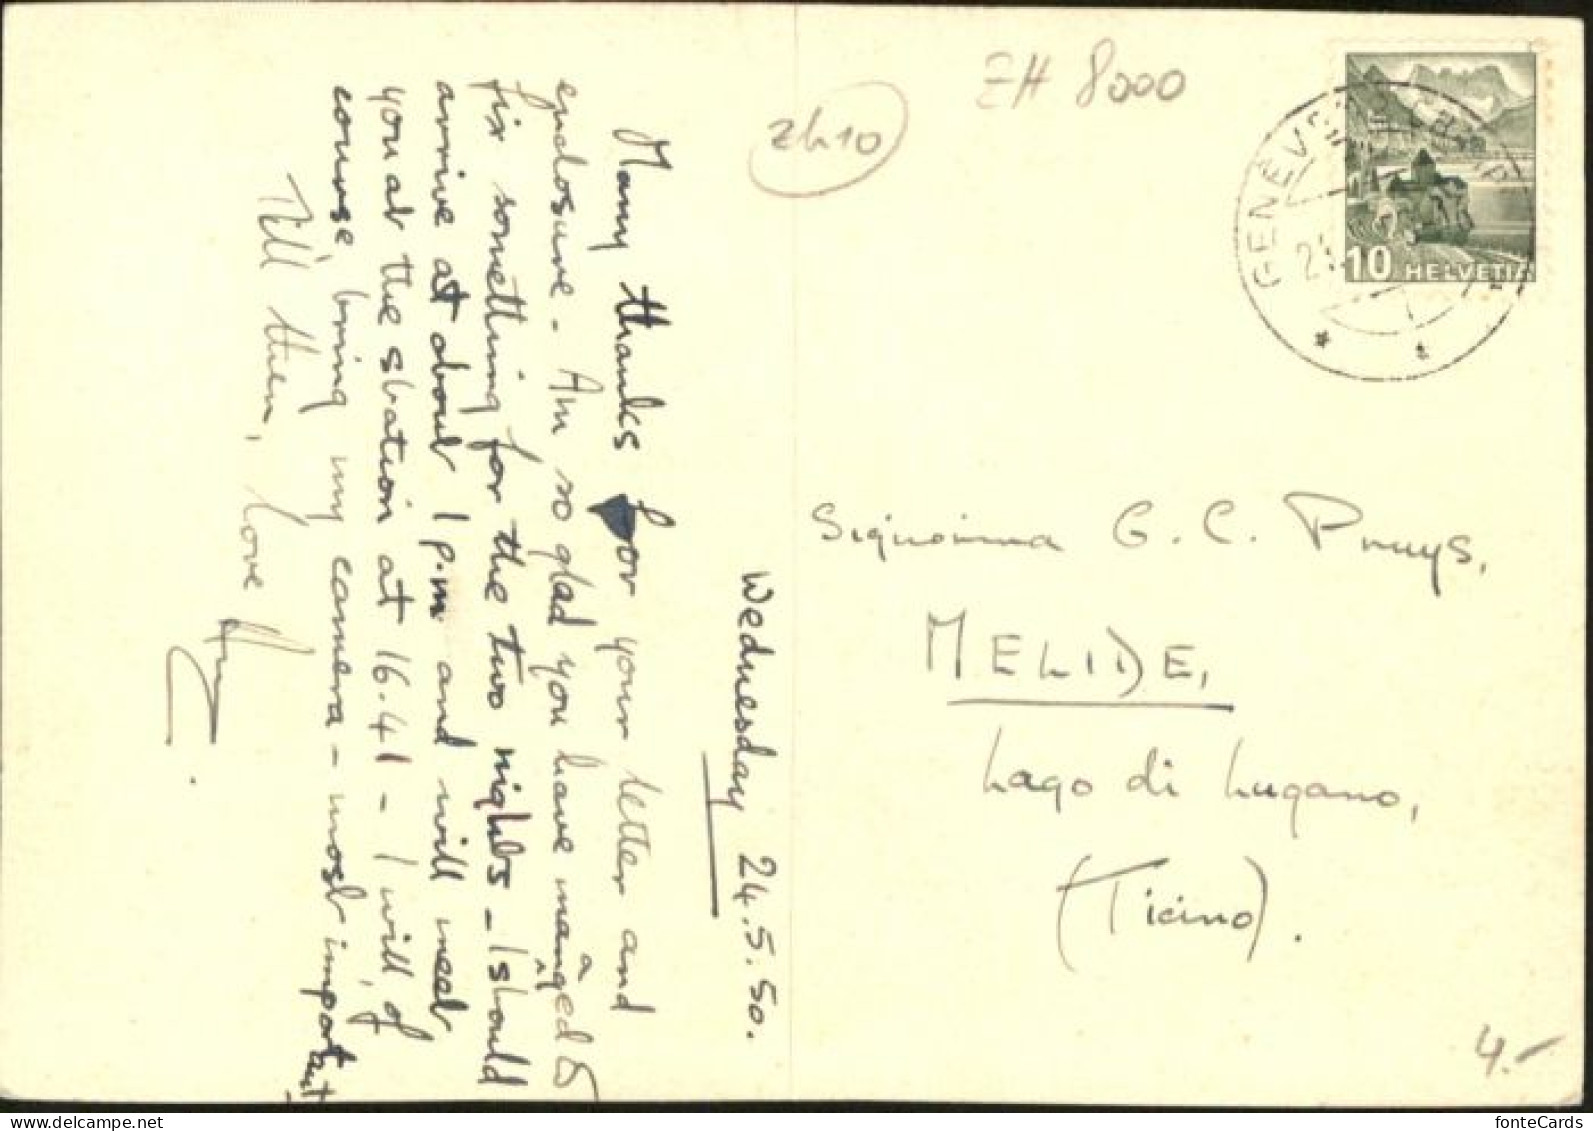 Wednesday 24.5.50.
Many thanks for your letter and
enclosure - Am so glad you have managed to
fix something for the two nights - I should
arrive at about 1 p.m and will meet
you at the station at 16.41 - I will, of
course, bring my camera - most important
Till then, love
zh10
ZH 8000
GENÈVE
10 HELVETIA
Signorina G. C. Pruys,
MELIDE,
Lago di Lugano,
(Ticino).
4.-
fonteCards